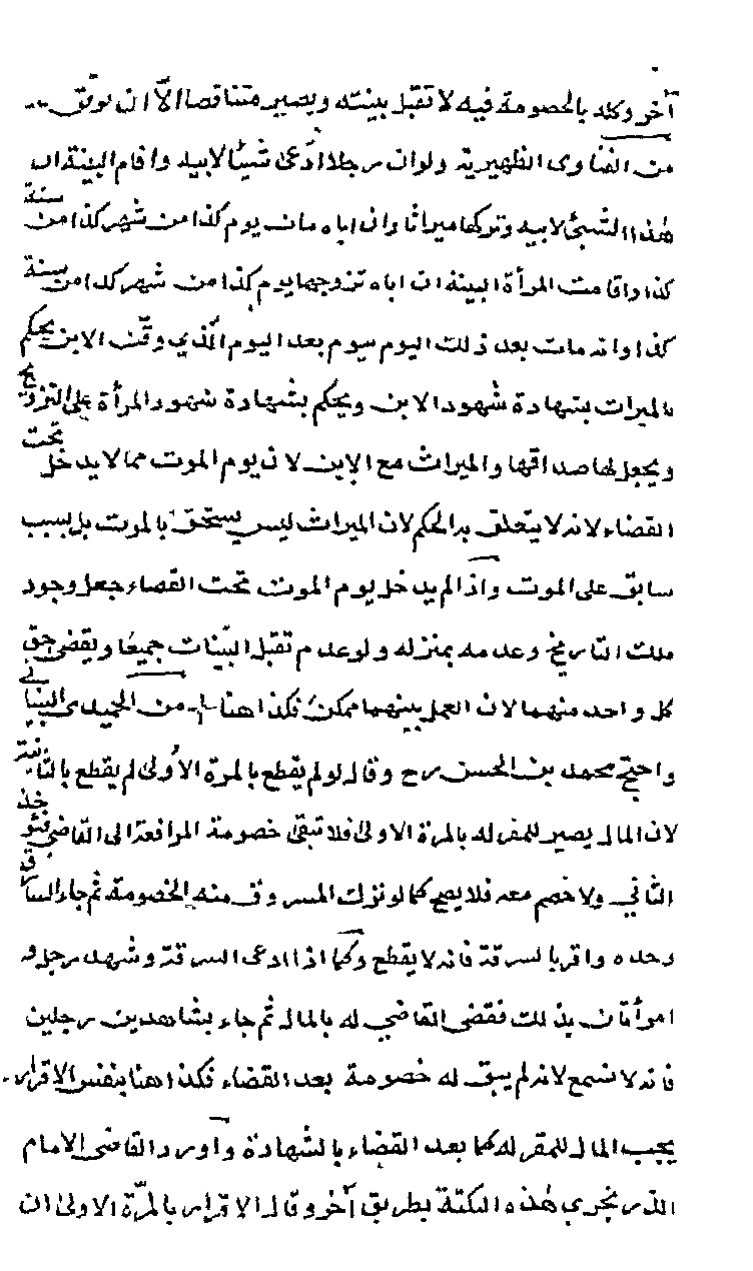 آخر وكله بالخصومة فيه لا تقبل بينته ويصير متناقضا الاّ ان يوفق
من الفتاوى الظهيرية ولو ان رجلا ادّعى شيئا لابيه واقام البينة ان
هٰذا الشيئ لابيه وتركها ميراثا وان اباه مات يوم كذا من شهر كذا من سنة
كذا واقامت المرأة البينة ان اباه تزوجها يوم كذا من شهر كذا من سنة
كذا وانه مات بعد ذلك اليوم بيوم بعد اليوم الّذي وقّت الابن يحكم
بالميراث بشهادة شهود الابن ويحكم بشهادة شهود المرأة على التزويج
ويجعل لها صداقها والميراث مع الابن لان يوم الموت مما لا يدخل تحت
القضاء لانه لا يتعلق به الحكم لان الميراث ليس يستحق بالموت بل بسبب
سابق على الموت واذا لم يدخل يوم الموت تحت القضاء جعل وجود
ملك التاريخ وعدمه بمنزله ولو عدم تقبل البيّنات جميعًا ويقضى بحق
كل واحد منهما لان العمل بينهما ممكن فكذا هنا من الحميدى في البنيا
واحتج محمد بن الحسن رح وقال لو لم يقطع بالمرة الاُولى لم يقطع بالثانية
لان المال يصير للمقر له بالمرة الاولى فلا تبقى خصومة المرافعة الى القاضي
الثاني ولا خصم معه فلا يصح كما لو نزلت المسروق منه الخصومة ثم جاء السارق
وحده واقر بالسرقة فانه لا يقطع وكما اذا ادعى السرقة وشهد رجل و
امرأتان بذلك فقضى القاضي له بالمال ثم جاء بشاهدين رجلين
فانه لا تسمع لانه لم يبق له خصومة بعد القضاء فكذا هنا بنفس الاقرار
يجب المال للمقر له كما بعد القضاء بالشهادة واورد القاضى الامام
هٰذه النكتة بطريق آخر وقال الاقرار بالمرّة الاولى ان